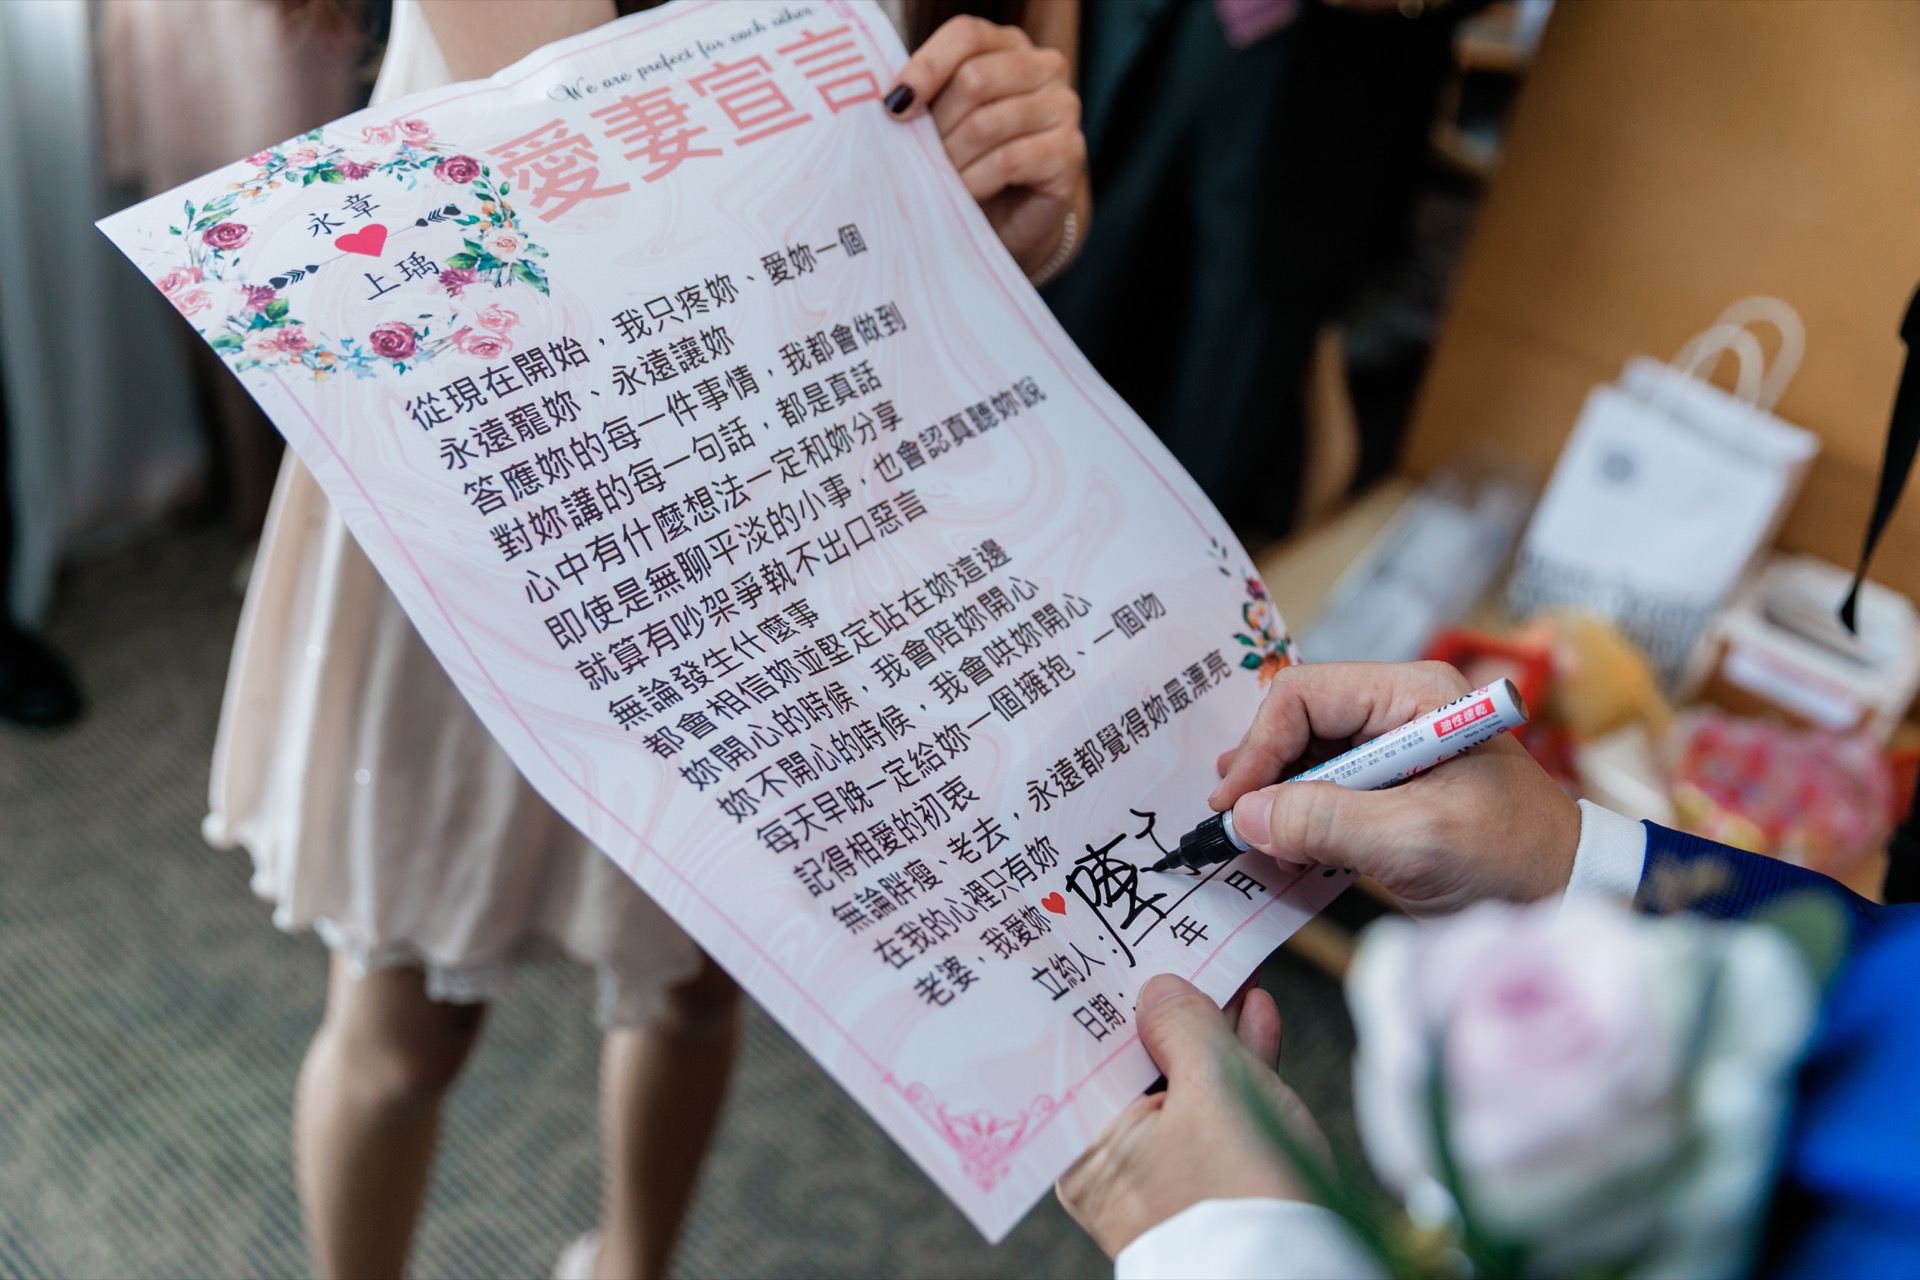 We are prefect for each other
愛妻宣言
永章
上瑀
從現在開始，我只疼妳、愛妳一個
永遠寵妳、永遠讓妳
答應妳的每一件事情，我都會做到
對妳講的每一句話，都是真話
心中有什麼想法一定和妳分享
即使是無聊平淡的小事，也會認真聽妳說
就算有吵架爭執不出口惡言
無論發生什麼事
都會相信妳並堅定站在妳這邊
妳開心的時候，我會陪妳開心
妳不開心的時候，我會哄妳開心
每天早晚一定給妳一個擁抱、一個吻
記得相愛的初衷
無論胖瘦、老去，永遠都覺得妳最漂亮
在我的心裡只有妳
老婆，我愛妳
立約人：陳
日期： 年 月
油性速乾